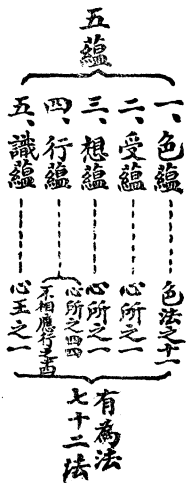 五蘊
一、色蘊……色法之十一
二、受蘊……心所之一
三、想蘊……心所之一
四、行蘊……心所之四四
不相應行之一四
五、識蘊……心王之一
有為法
七十二法